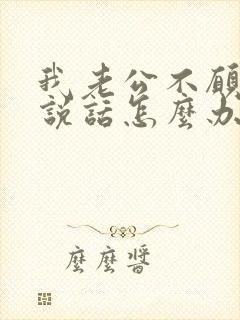 我老公不願
說話怎麼办
麼麼醬